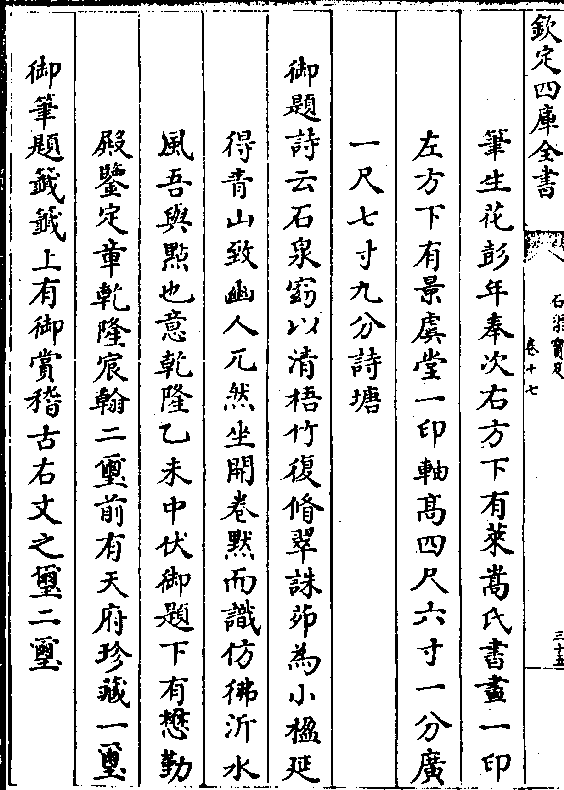 欽定四庫全書
石渠寶笈
卷十七
三十五
筆生花彭年奉次右方下有萊嵩氏書畫一印
左方下有景虞堂一印軸髙四尺六寸一分廣
一尺七寸九分詩塘
御題詩云石泉窈以清梧竹復脩翠誅茆為小楹延
得青山致幽人兀然坐開卷黙而識仿彿沂水
風吾與㸃也意乾隆乙未中伏御題下有懋勤
殿鑒定章乾隆宸翰二璽前有天府珍藏一璽
御筆題籖籖上有御賞稽古右文之璽二璽